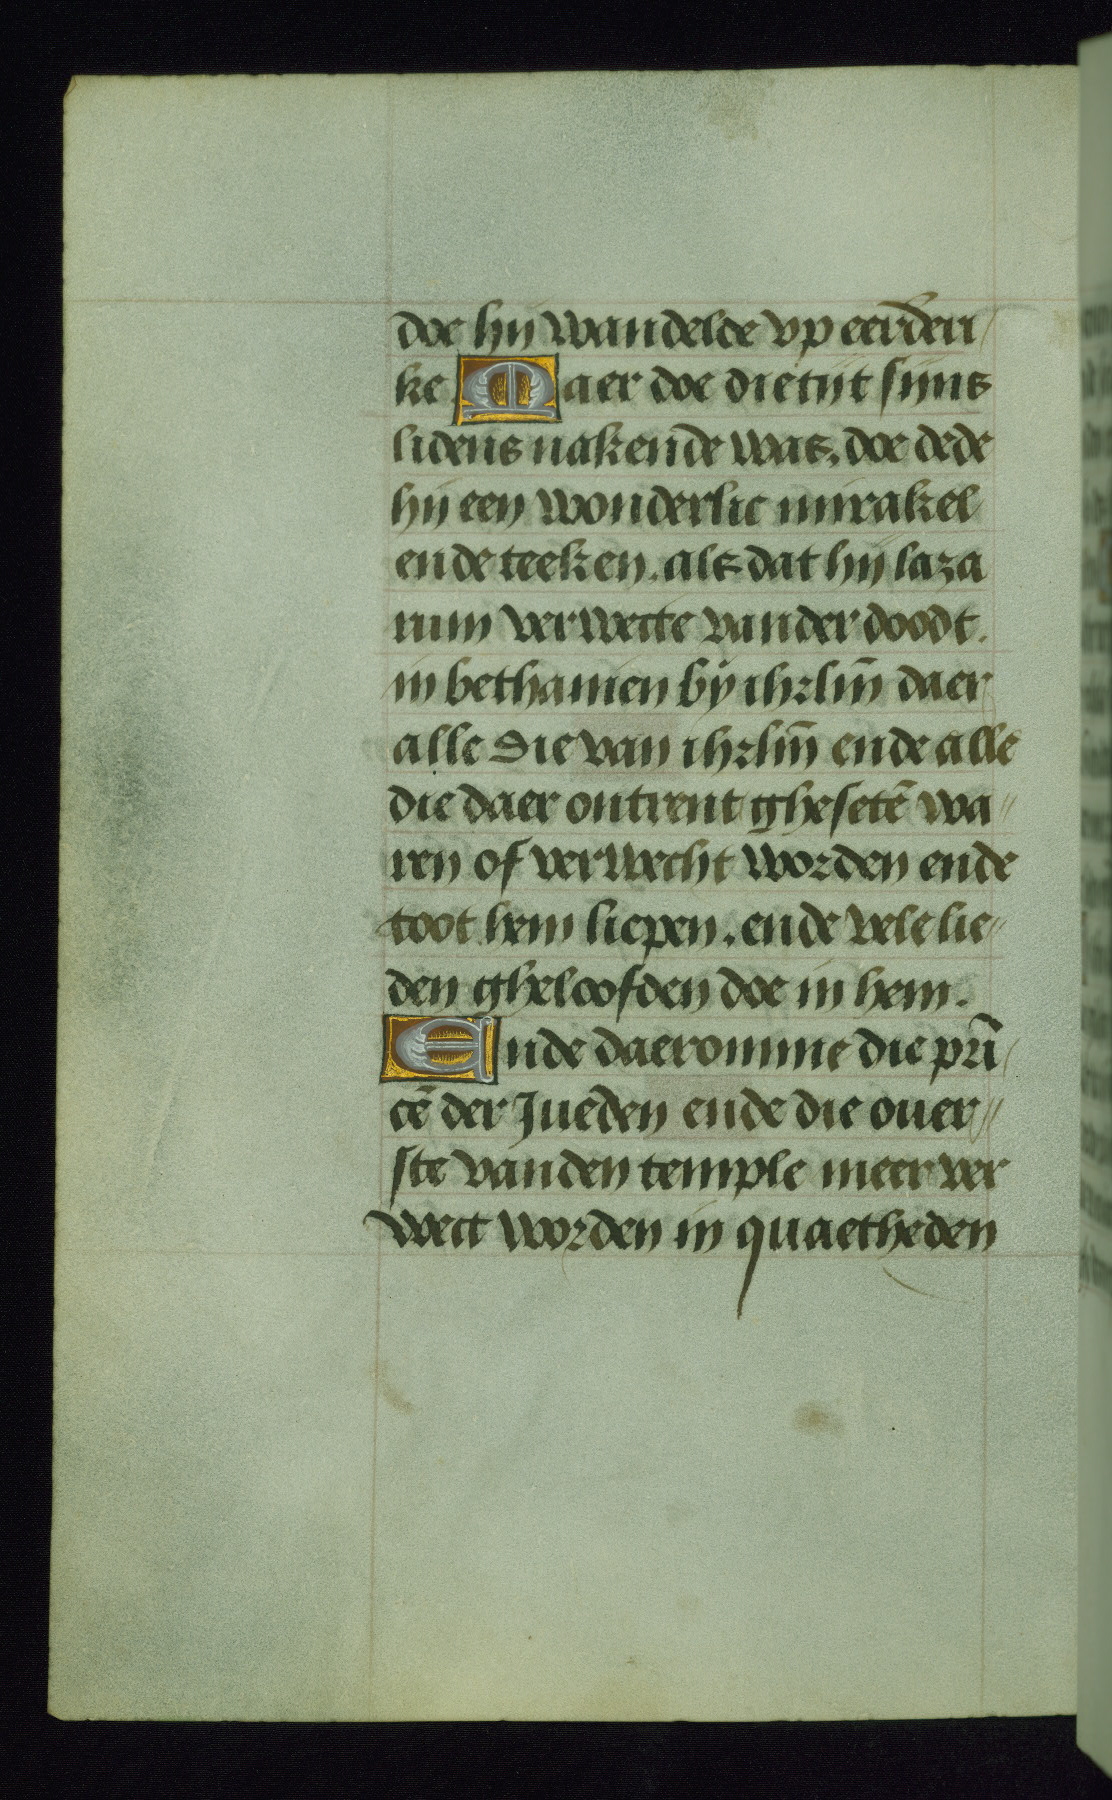 doe hij wandelde vp eerd̄eri
ke Maer doe die tijt sijns
lidens nakende was. doe dede
hij een wonderlic mirakel
ende teeken. als dat hij laza
rum verwecte vander doodt.
in bethanien by ihrlm̄ daer
alle die van ihrlm̄ ende alle
die daer ontrent ghesetē wa〃
ren of verwecht worden ende
toot hem liepen. ende vele lie〃
den gheloofden doe in hem.
Ende daeromme die prī
cē der Jueden ende die ouer〃
ste vanden temple meer ver
wect worden in quaetheden